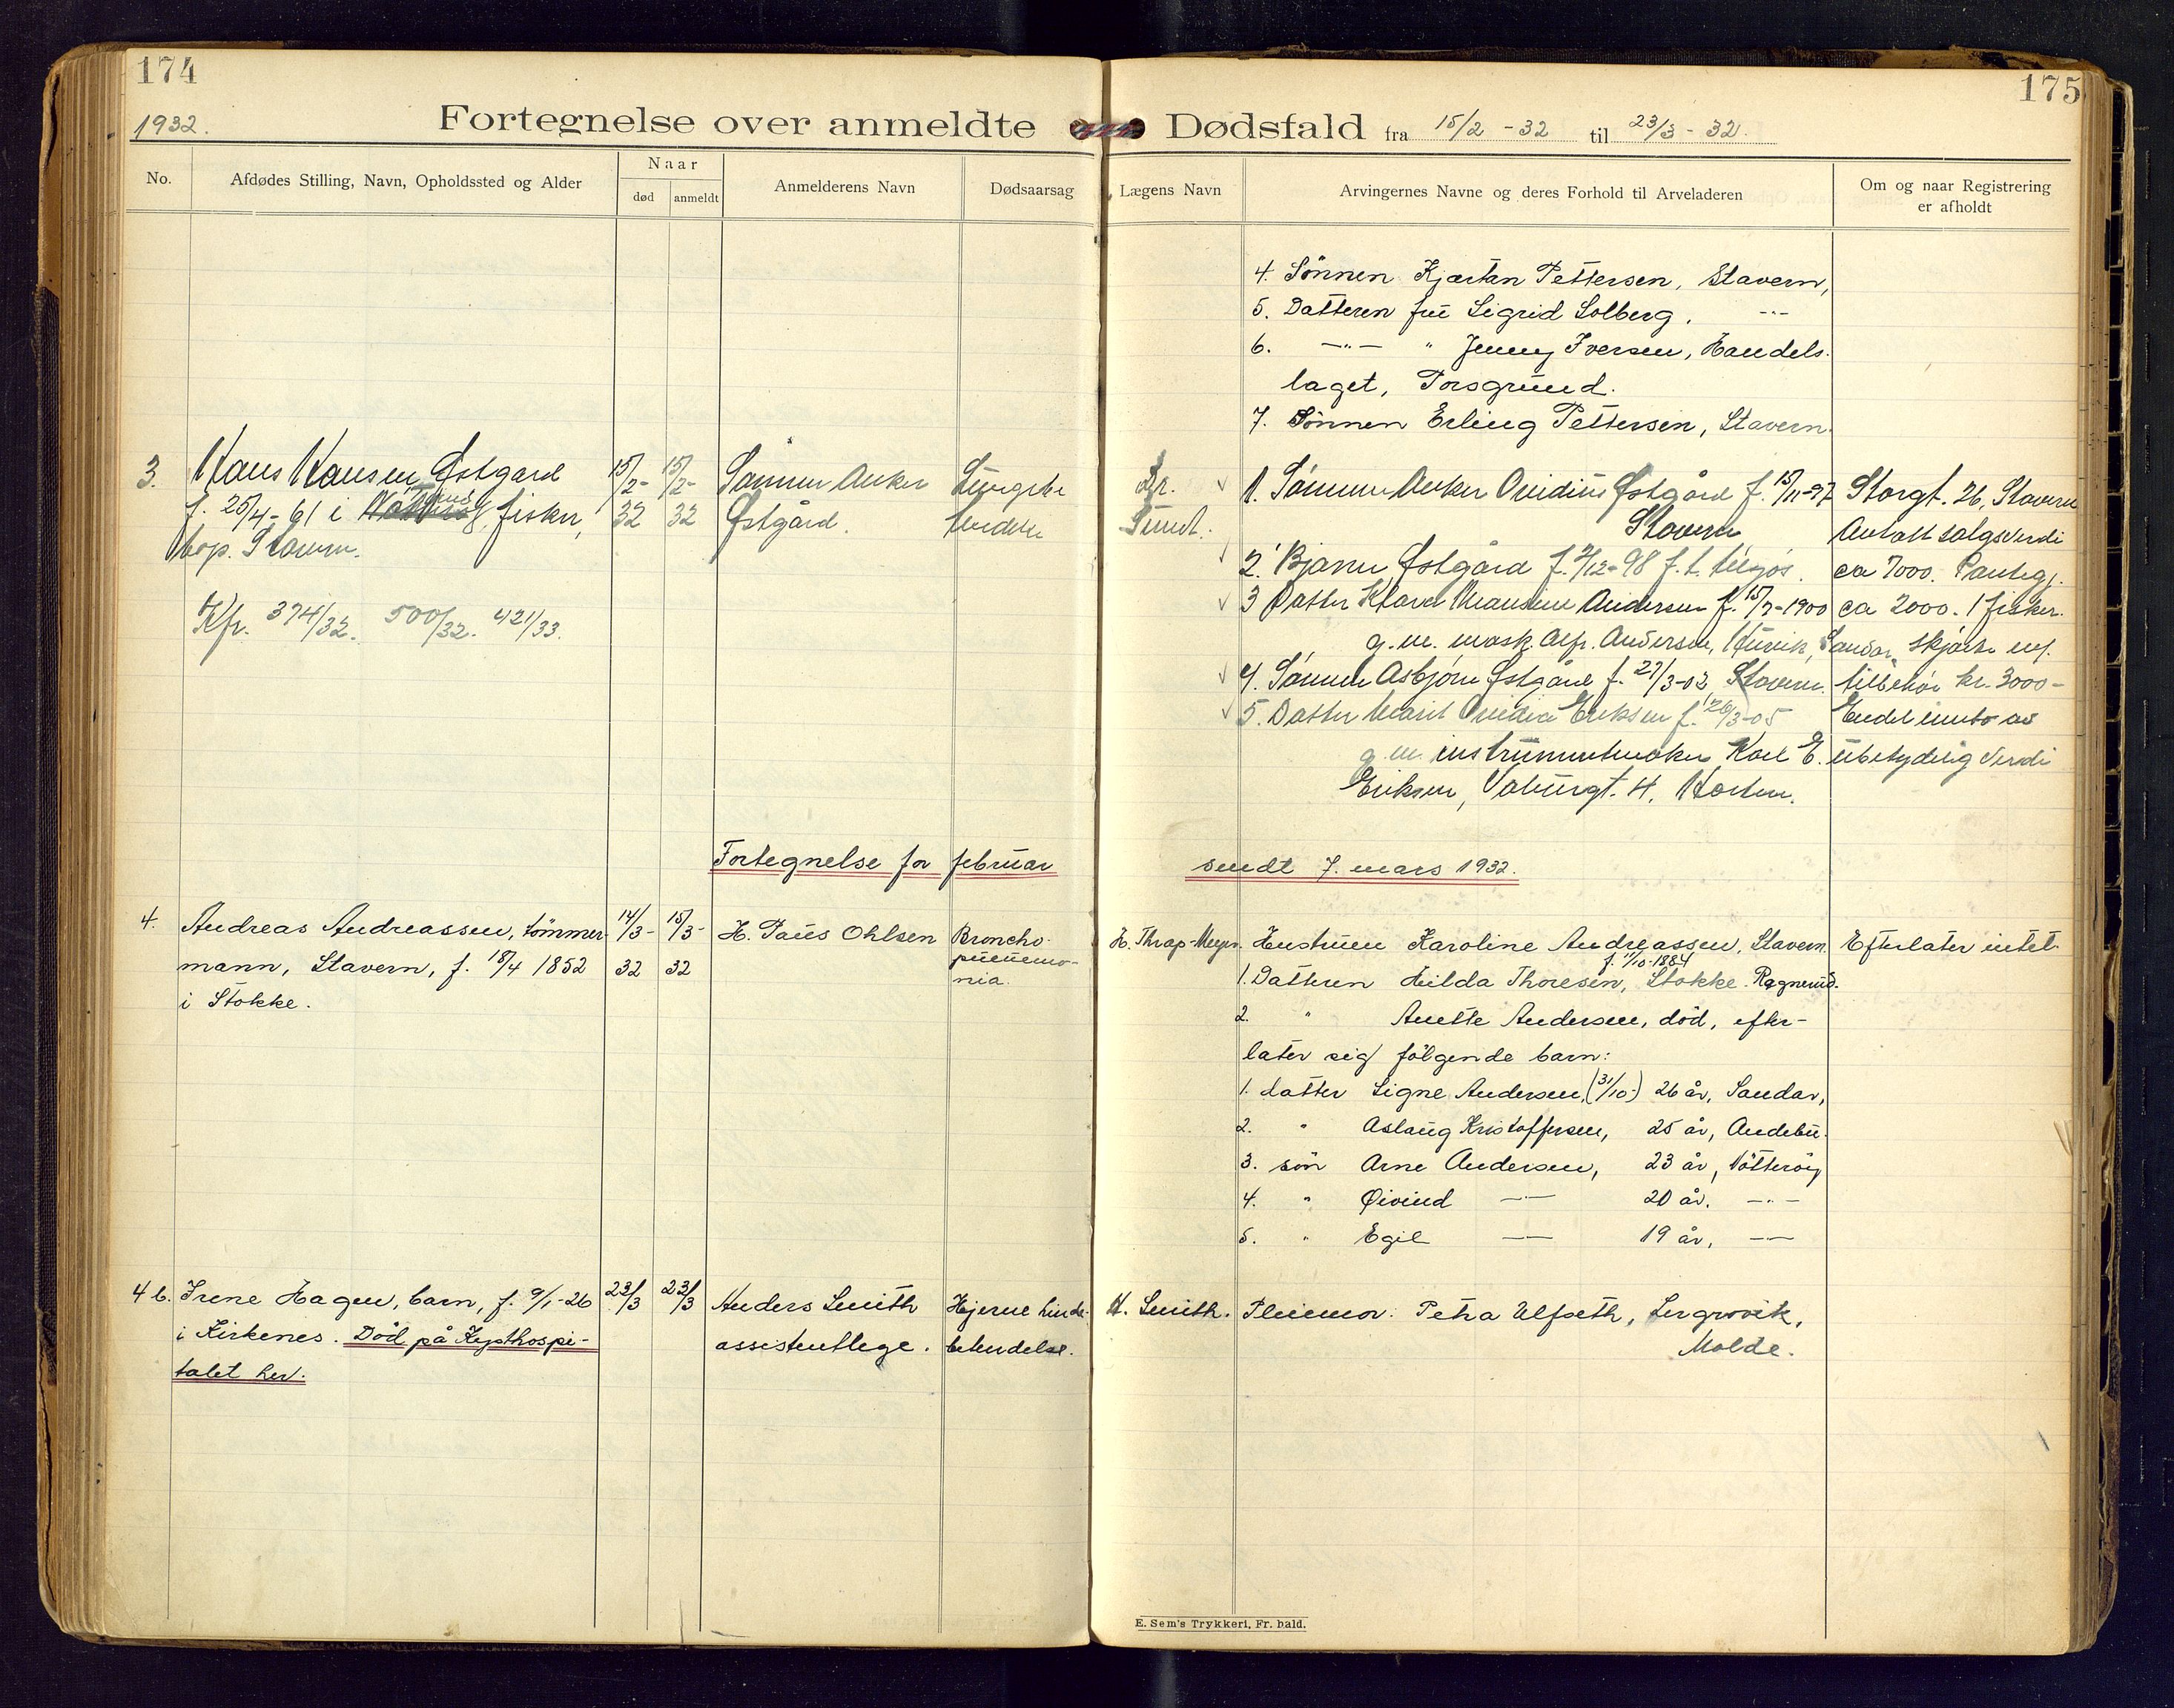 174
175
1932.
Fortegnelse over anmeldte Dødsfald fra 15/2 - 32 til 23/3 - 32.
No.
Afdødes Stilling, Navn, Opholdssted og Alder
Naar
død
anmeldt
Anmelderens Navn
Dødsaarsag
Lægens Navn
Arvingernes Navne og deres Forhold til Arveladeren
Om og naar Registrering
er afholdt
4. Sönnen Kjartan Pettersen, Stavern,
5. Datteren frü Sigrid Solberg, -"-
6. -"- " Jenny Iversen, Handels-
laget, Porsgrund.
7. Sönnen Erling Pettersen, Stavern.
3. Hans Hansen Østgard
f. 25/4 - 61 i fisker,
bop. Stavern.
Kfr. 374/32. 500/32. 421/33.
15/2-
32
15/2-
32
Sønnen Anker
Østgård.
Lunge
Dr.
1. Sønnen Anker Ovidius Østgård f. 15/11-97
Stavern
2. Bjarne Østgård f. 2/12-98 f. t. tilsjøs.
3 Datter Klara Andersen f. 15/7-1900
g. m. mask. Alf. Andersen, Sandar
4. Sønnen Asbjørn Østgård f. 27/3-02, Stavern.
5. Datter Marit Ovidia Eriksen f. 26/3-05
g. m. instrumentmaker Karl E.
Eriksen, 4, Horten.
Storgt. 26, Stavern
Antatt salgsverdi
ca 7000. Pantegj.
ca 2000. 1 fisker-
skjøite m/
tilbehør kr. 3000-
Endel innbo av
ubetydelig verdi
Fortegnelse for februar sendt 7. mars 1932.
4. Andreas Andreassen, tömmer-
mann, Stavern, f. 18/4 1852
i Stokke.
14/3-
32
15/3-
32
H. Paus Ohlsen
Broncho-
pneumo-
nia.
H. Thrap-Meyer.
Hustruen Karoline Andreassen, Stavern.
f. 11/10-1884
1. Datteren Hilda Thoresen, Stokke. Ragnerud.
2. " Anette Andersen, död, efter-
later sig følgende barn:
1. datter Signe Andersen, (31/10-) 26 år, Sandar,
2. " Aslaug Kristoffersen, 25 år, Andebu.
3. sön Arne Andersen, 23 år, Nötteröy
4. " Øivind -"- 20 år. -"-
5. " Egil -"- 19 år, -"-
Efterlater intet.
4 b. Irene Hagen, barn, f. 9/1-26
i Kirkenes. Död på Kysthospi-
talet her.
23/3
23/3
Anders Smith
assistentlege.
Hjerne hinde-
betendelse.
A. Smith.
Pleiemor: Petra Ulfseth,
Molde.
E. Sem's Trykkeri, Fr. hald.